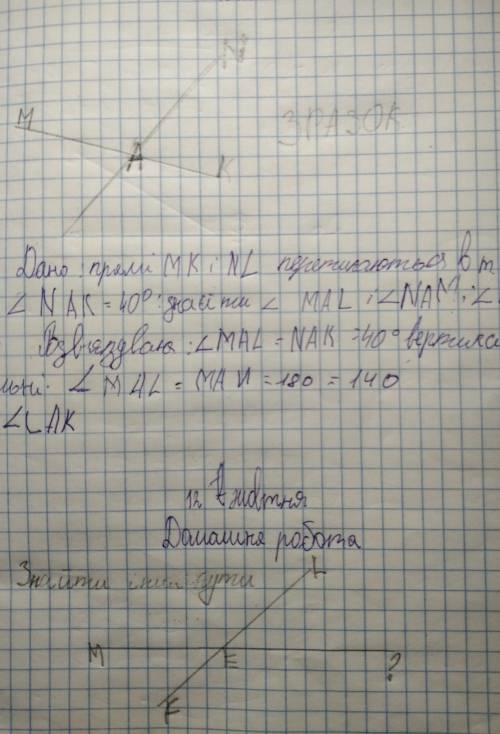 N
M
ЗРАЗОК
A
K
Дано: прямі MK і NL перетинаються в т
∠NAK = 40°: знайти ∠ MAL і ∠NAM; ∠
∠MAL = NAK = 40° вертика
льні. ∠MAL = MAN = 180 = 140
∠LAK
12 жовтня
Домашня робота
Знайти інші кути
L
M E ?